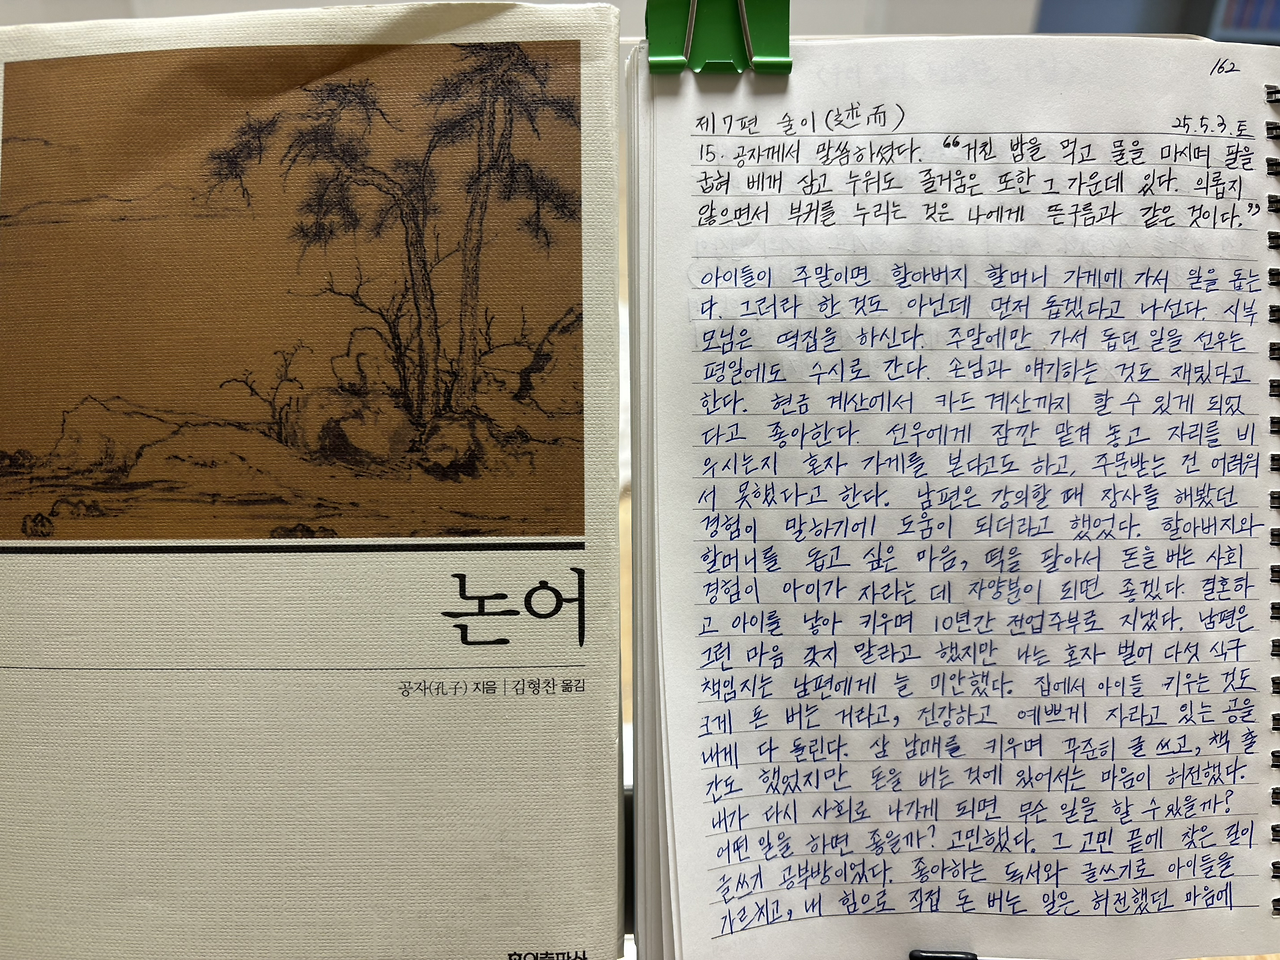 논어
공자(孔子) 지음 | 김형찬 옮김
162
제7편 술이(述而)
25.5.3.토
15. 공자께서 말씀하셨다. "거친 밥을 먹고 물을 마시며 팔을
굽혀 베개 삼고 누워도 즐거움은 또한 그 가운데 있다. 의롭지
않으면서 부귀를 누리는 것은 나에게 뜬구름과 같은 것이다."
아이들이 주말이면 할아버지 할머니 가게에 가서 일을 돕는
다. 그러라 한 것도 아닌데 먼저 돕겠다고 나선다. 시부
모님은 떡집을 하신다. 주말에만 가서 돕던 일을 선우는
평일에도 수시로 간다. 손님과 얘기하는 것도 재밌다고
한다. 현금 계산에서 카드 계산까지 할 수 있게 되었
다고 좋아한다. 선우에게 잠깐 맡겨 놓고 자리를 비
우시는지 혼자 가게를 본다고도 하고, 주문받는 건 어려워
서 못했다고 한다. 남편은 강의할 때 장사를 해봤던
경험이 말하기에 도움이 되더라고 했었다. 할아버지와
할머니를 돕고 싶은 마음, 떡을 팔아서 돈을 버는 사회
경험이 아이가 자라는 데 자양분이 되면 좋겠다. 결혼하
고 아이를 낳아 키우며 10년간 전업주부로 지냈다. 남편은
그런 마음 갖지 말라고 했지만 나는 혼자 벌어 다섯 식구
책임지는 남편에게 늘 미안했다. 집에서 아이들 키우는 것도
크게 돈 버는 거라고, 건강하고 예쁘게 자라고 있는 공을
내게 다 돌린다. 삼 남매를 키우며 꾸준히 글 쓰고, 책 출
간도 했었지만 돈을 버는 것에 있어서는 마음이 허전했다.
내가 다시 사회로 나가게 되면 무슨 일을 할 수 있을까?
어떤 일을 하면 좋을까? 고민했다. 그 고민 끝에 찾은 길이
글쓰기 공부방이었다. 좋아하는 독서와 글쓰기로 아이들을
가르치고, 내 힘으로 직접 돈 버는 일은 허전했던 마음에